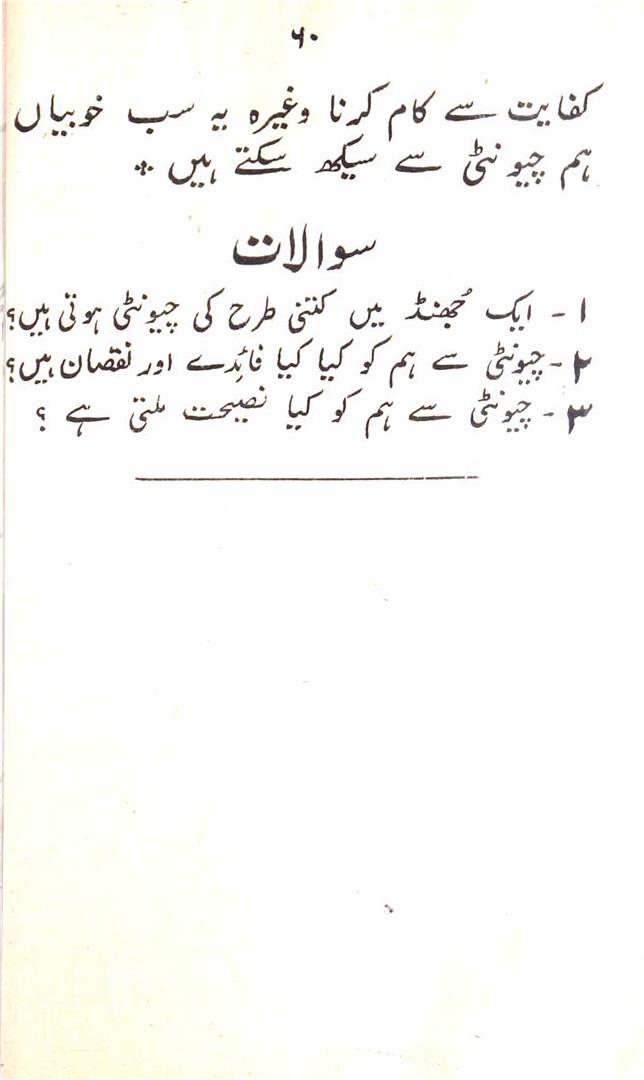 ۶۰
کفایت سے کام کرنا وغیرہ یہ سب خوبیاں
ہم چیونٹی سے سیکھ سکتے ہیں ⁘
سوالات
۱ - ایک جُھنڈ میں کتنی طرح کی چیونٹی ہوتی ہیں؟
۲ - چیونٹی سے ہم کو کیا کیا فائدے اور نقصان ہیں؟
۳ - چیونٹی سے ہم کو کیا نصیحت ملتی ہے ؟